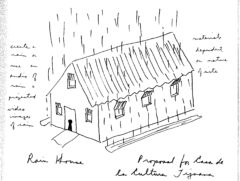 create a
rain or
use an
audio of
rain &
projected
video
images
of rain
materials
dependent
on nature
of site
Rain House
Proposal for Casa de
la Cultura Tijuana